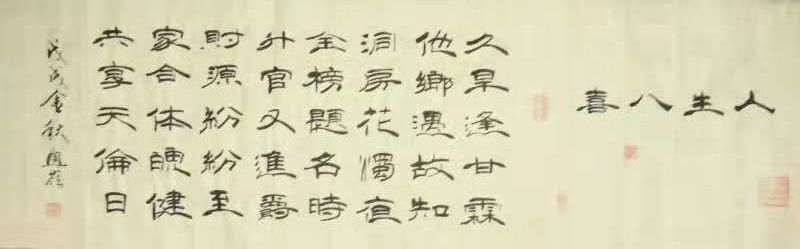 人生八喜
久旱逢甘霖
他鄉遇故知
洞房花燭夜
金榜題名時
升官又進爵
財源紛紛至
家合体魄健
共享天倫日
戊戌金秋